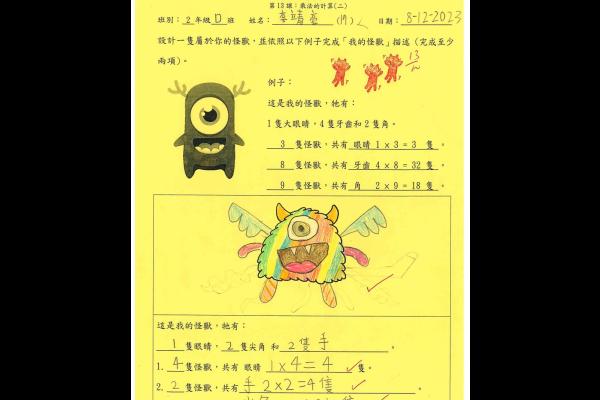 第13課：乘法的計算(二)
班別：2年級D班 姓名：李靖 (19) 日期：8-12-2023
設計一隻屬於你的怪獸，並依照以下例子完成「我的怪獸」描述（完成至少
兩項）。
例子：
這是我的怪獸，牠有：
1隻大眼睛，4隻牙齒和2隻角。
3 隻怪獸，共有 眼睛 1 x 3 = 3 隻。
8 隻怪獸，共有 牙齒 4 x 8 = 32 隻。
9 隻怪獸，共有 角 2 x 9 = 18 隻。
這是我的怪獸，牠有：
1 隻眼睛，2 隻尖角 和 2隻手。
1. 4 隻怪獸，共有 眼睛 1x4=4 隻。
2. 2 隻怪獸，共有 手 2x2=4隻。